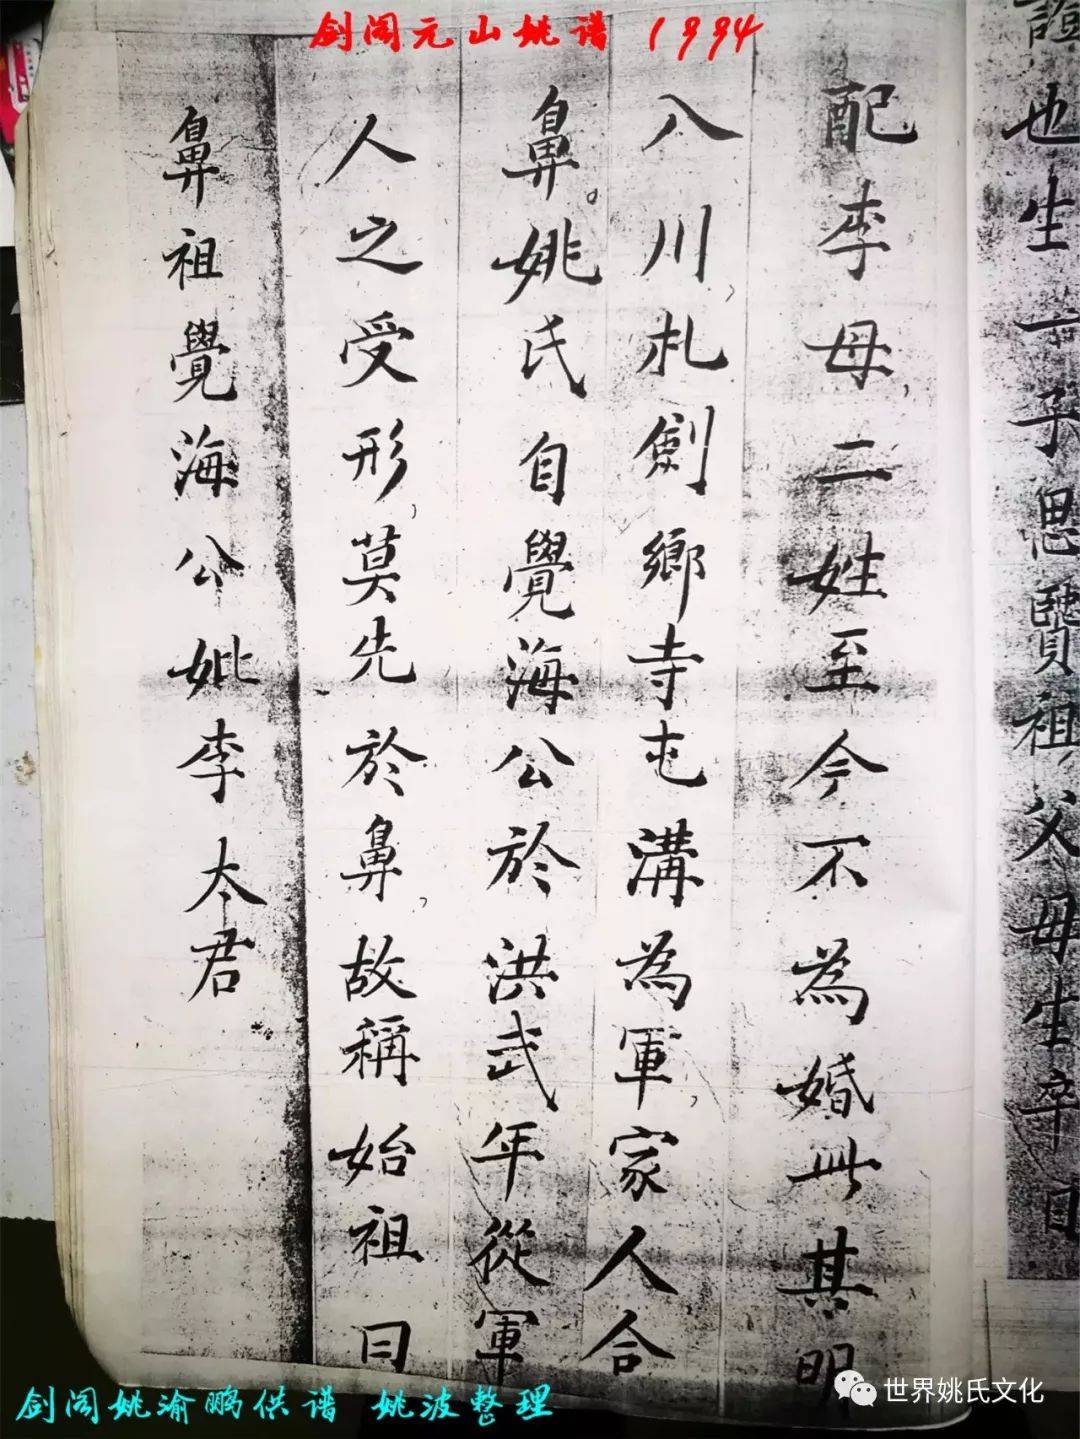 剑阁元山姚谱 1994
鼻祖覺海公妣李太君
人之受形，莫先於鼻，故稱始祖曰
鼻。姚氏自覺海公於洪武年從軍
八川，札劍鄉寺屯溝為軍，家人合
配李母，二姓至今不為婚此其明
證也生一子思賢祖，父母生卒
剑阁姚渝鹏供谱 姚波整理
世界姚氏文化